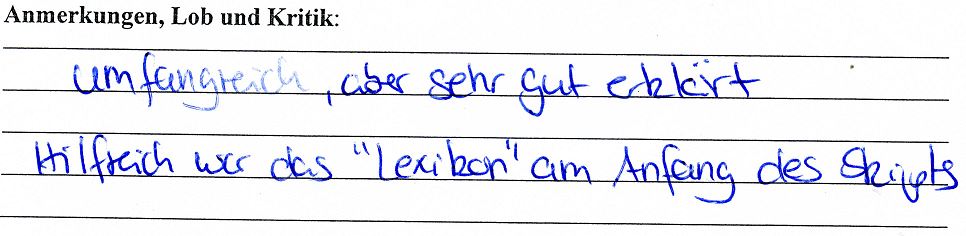 Anmerkungen, Lob und Kritik:
umfangreich, aber sehr gut erklärt
Hilfreich war das "Lexikon" am Anfang des Skripts